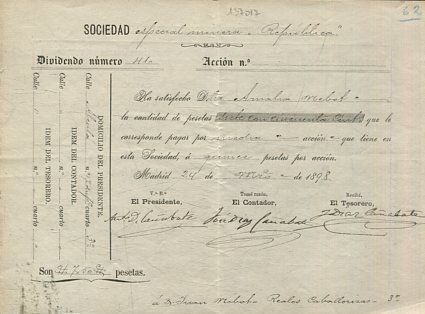 157017
62
SOCIEDAD especial minera "República"
Dividendo número 41 Acción n.º
Ha satisfecho D.ña Amalia Mebot
la cantidad de pesetas siete con cincuenta cents que le
corresponde pagar por media acción que tiene en
esta Sociedad, á quince pesetas por acción.
Madrid 24 de de 1898
V.º B.º
El Presidente,
Tomé razón,
El Contador,
Recibí,
El Tesorero,
D. Cañabate
José Díaz Cañabate
J. Díaz Cañabate
DOMICILIO DEL PRESIDENTE.
Calle n.º cuarto 3.º
IDEM DEL CONTADOR.
Calle n.º cuarto
IDEM DEL TESORERO.
Calle n.º cuarto
Son pesetas.
á D. Juan Mebot Reales Caballerizas 3.º